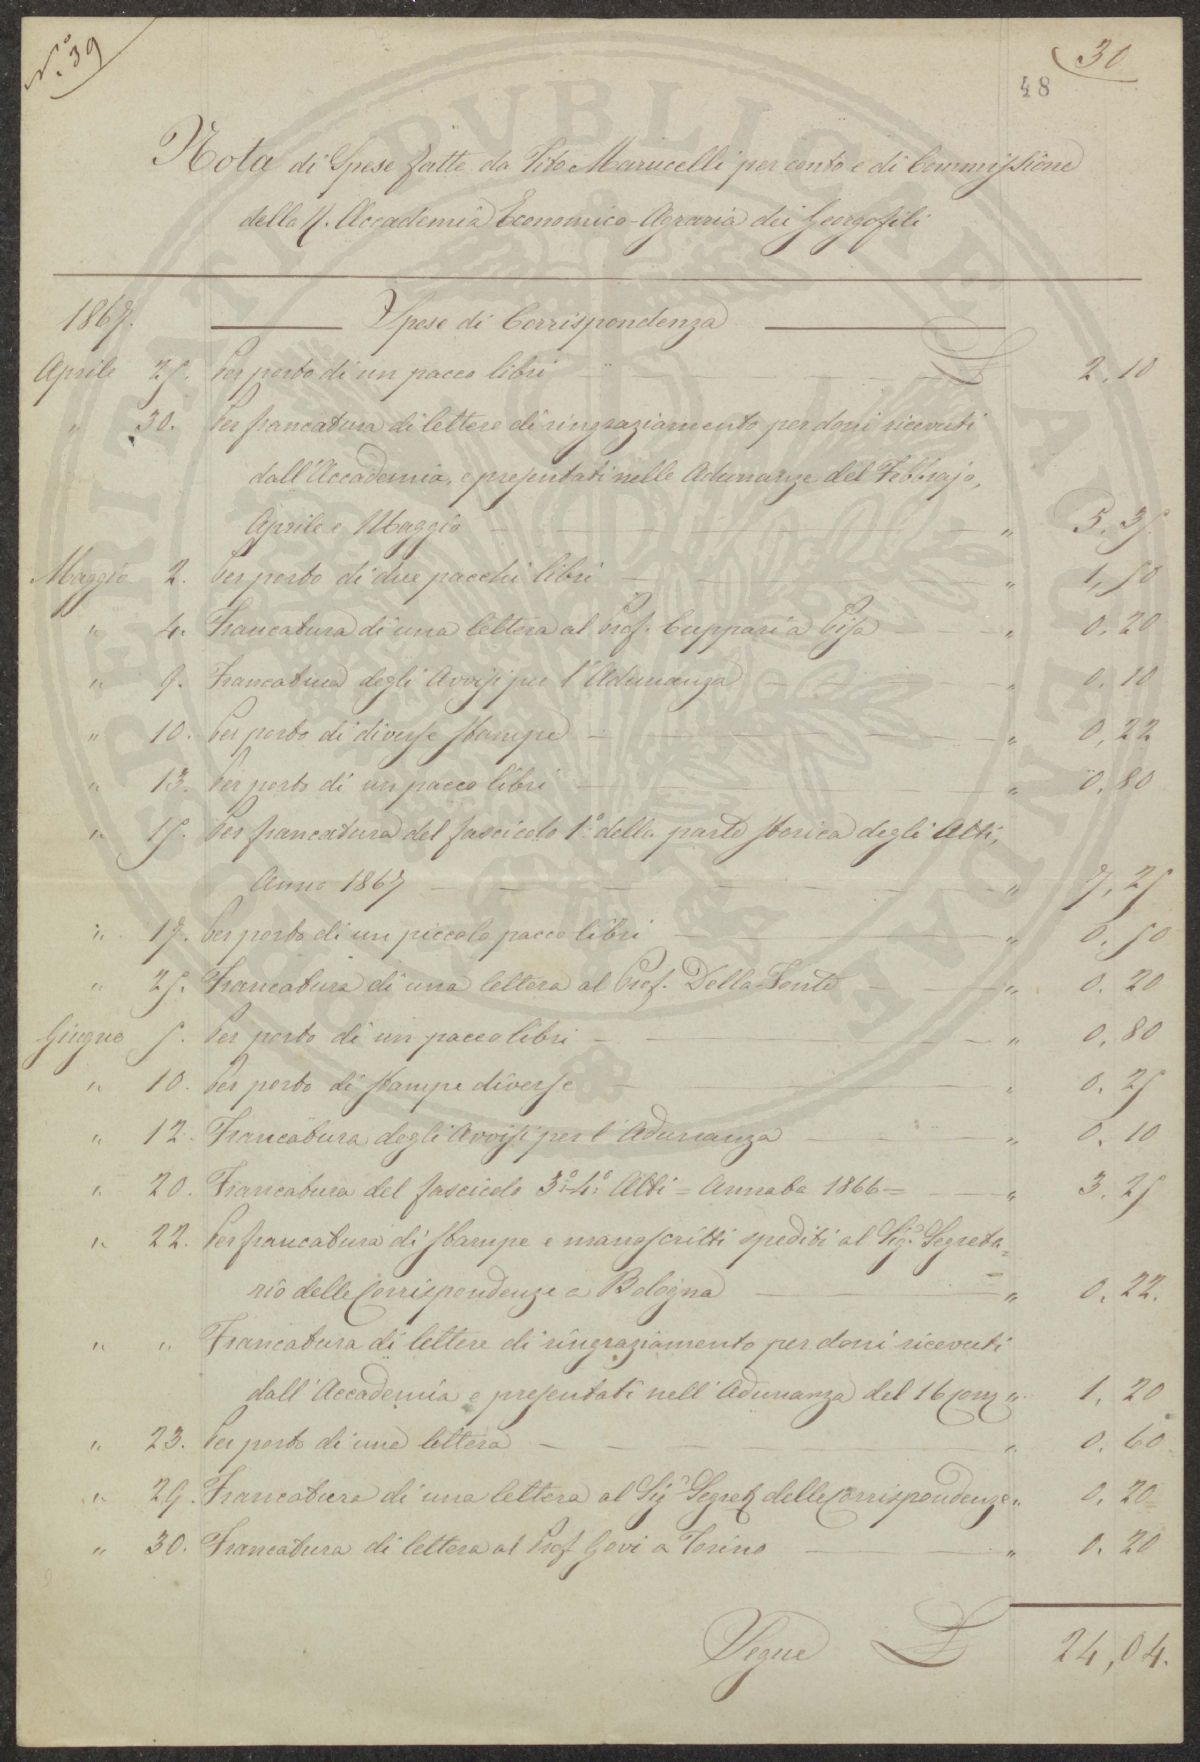 N.° 39
30
48
Nota di Spese fatte da Tito Marucelli per conto e di Commissione
della R. Accademia Economico-Agraria dei Georgofili
1867. Spese di Corrispondenza
Aprile 25. Per porto di un pacco libri L 2.10
" 30. Per francatura di lettere di ringraziamento per doni ricevuti
dall'Accademia, e presentati nelle Adunanze del Febbrajo,
Aprile e Maggio " 5.35
Maggio 2. Per porto di due pacchi libri " 1,50
" 4. Francatura di una lettera al Prof. Cuppari a Pisa " 0.20
" 9. Francatura degli Avvisi per l'Adunanza " 0.10
" 10. Per porto di diverse stampe " 0,22
" 13. Per porto di un pacco libri " 0.80
" 15. Per francatura del fascicolo 1° della parte storica degli Atti,
Anno 1867 " 7,25
" 17. Per porto di un piccolo pacco libri " 0.50
" 25. Francatura di una lettera al Prof. Della-Fonte " 0.20
Giugno 5. Per porto di un pacco libri " 0,80
" 10. Per porto di stampe diverse " 0.25
" 12. Francatura degli Avvisi per l'Adunanza " 0.10
" 20. Francatura del fascicolo 3° 4° Atti = Annata 1866 = " 3.25
" 22. Per francatura di stampe e manoscritti spediti al Sig. Segreta=
rio delle Corrispondenze a Bologna " 0.22.
" " Francatura di lettere di ringraziamento per doni ricevuti
dall'Accademia e presentati nell'Adunanza del 16 " 1.20
" 23. Per porto di una lettera " 0.60
" 29. Francatura di una lettera al Sig. Segret. delle Corrispondenze " 0.20
" 30. Francatura di lettera al Prof. Govi a Torino " 0.20
Segue L 24,04.
PROSPERITATI PVBLICAE AVGENDAE